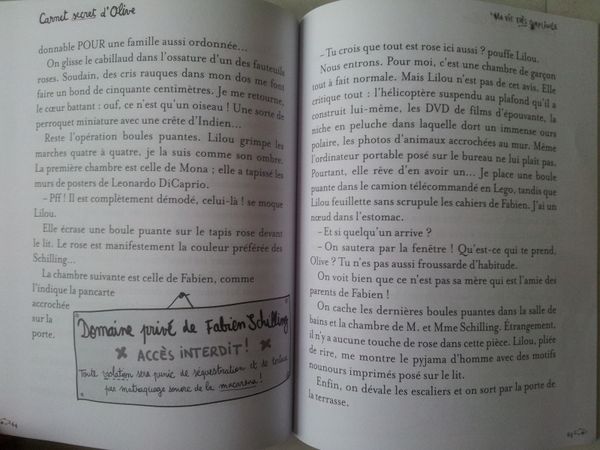 Carnet secret d'Olive
donnable POUR une famille aussi ordonnée...
On glisse le cabillaud dans l'ossature d'un des fauteuils
roses. Soudain, des cris rauques dans mon dos me font
faire un bond de cinquante centimètres. Je me retourne,
le cœur battant : ouf, ce n'est qu'un oiseau ! Une sorte de
perroquet miniature avec une crête d'Indien...
Reste l'opération boules puantes. Lilou grimpe les
marches quatre à quatre, je la suis comme son ombre.
La première chambre est celle de Mona ; elle a tapissé les
murs de posters de Leonardo DiCaprio.
– Pff ! Il est complètement démodé, celui-là ! se moque
Lilou.
Elle écrase une boule puante sur le tapis rose devant
le lit. Le rose est manifestement la couleur préférée des
Schilling...
La chambre suivante est celle de Fabien, comme
l'indique la pancarte
accrochée
sur la
porte.
Domaine privé de Fabien Schilling
ACCÈS INTERDIT !
Toute violation sera punie de séquestration et de torture
par matraquage sonore de la macarena !
44
Ma vie très compliquée
– Tu crois que tout est rose ici aussi ? pouffe Lilou.
Nous entrons. Pour moi, c'est une chambre de garçon
tout à fait normale. Mais Lilou n'est pas de cet avis. Elle
critique tout : l'hélicoptère suspendu au plafond qu'il a
construit lui-même, les DVD de films d'épouvante, la
niche en peluche dans laquelle dort un immense ours
polaire, les photos d'animaux accrochées au mur. Même
l'ordinateur portable posé sur le bureau ne lui plaît pas.
Pourtant, elle rêve d'en avoir un... Je place une boule
puante dans le camion télécommandé en Lego, tandis que
Lilou feuillette sans scrupule les cahiers de Fabien. J'ai un
nœud dans l'estomac.
– Et si quelqu'un arrive ?
– On sautera par la fenêtre ! Qu'est-ce qui te prend,
Olive ? Tu n'es pas aussi froussarde d'habitude.
On voit bien que ce n'est pas sa mère qui est l'amie des
parents de Fabien !
On cache les dernières boules puantes dans la salle de
bains et la chambre de M. et Mme Schilling. Étrangement,
il n'y a aucune touche de rose dans cette pièce. Lilou, pliée
de rire, me montre le pyjama d'homme avec des motifs
nounours imprimés posé sur le lit.
Enfin, on dévale les escaliers et on sort par la porte de
la terrasse.